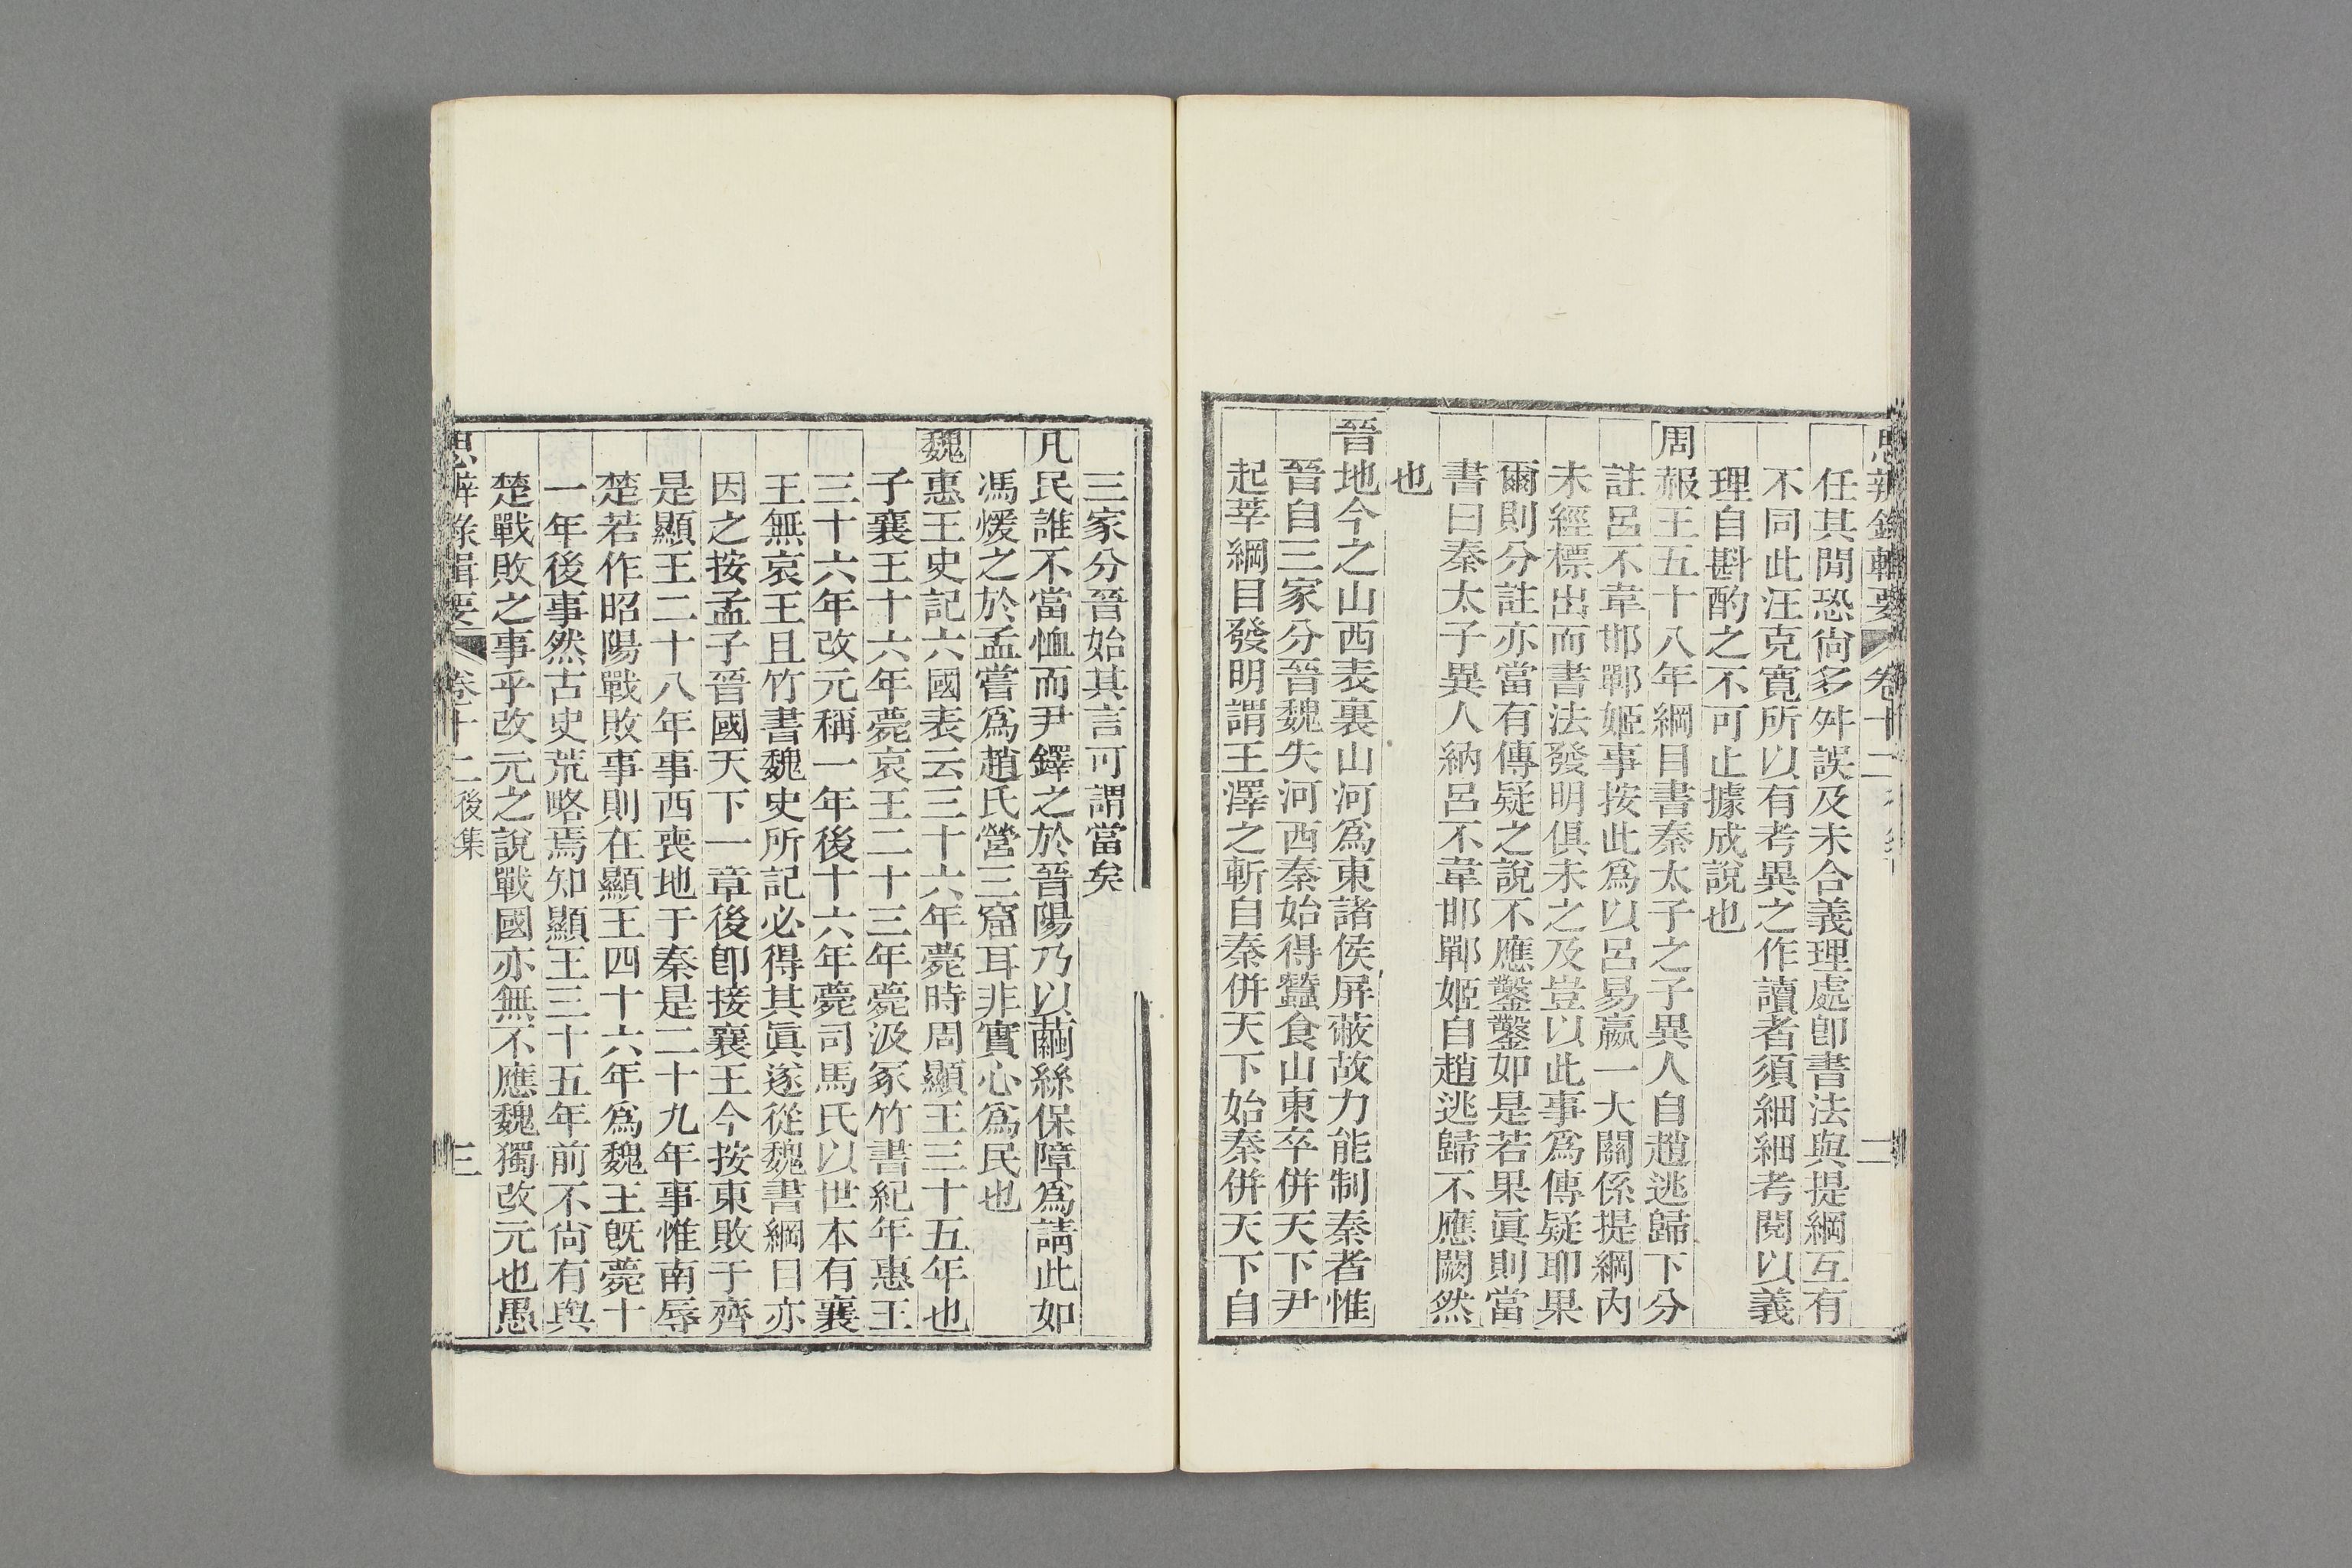 思辨錄輯要 卷十二 二
任其閒恐尙多舛誤及未合義理處卽書法與提綱互有
不同此汪克寬所以有考異之作讀者須細細考閱以義
理自斟酌之不可止據成說也
周赧王五十八年綱目書秦太子之子異人自趙逃歸下分
註呂不韋邯鄲姬事按此爲以呂易嬴一大關係提綱內
未經標出而書法發明俱未之及豈以此事爲傳疑耶果
爾則分註亦當有傳疑之說不應鑿鑿如是若果眞則當
書曰秦太子異人納呂不韋邯鄲姬自趙逃歸不應闕然
也
晉地今之山西表裏山河爲東諸侯屏蔽故力能制秦者惟
晉自三家分晉魏失河西秦始得蠶食山東卒併天下尹
起莘綱目發明謂王澤之斬自秦併天下始秦併天下自
三家分晉始其言可謂當矣
凡民誰不當恤而尹鐸之於晉陽乃以繭絲保障爲請此如
馮煖之於孟嘗爲趙氏營三窟耳非實心爲民也
魏惠王史記六國表云三十六年薨時周顯王三十五年也
子襄王十六年薨哀王二十三年薨汲冢竹書紀年惠王
三十六年改元稱一年後十六年薨司馬氏以世本有襄
王無哀王且竹書魏史所記必得其眞遂從魏書綱目亦
因之按孟子晉國天下一章後卽接襄王今按東敗于齊
是顯王二十八年事西喪地于秦是二十九年事惟南辱
楚若作昭陽戰敗事則在顯王四十六年爲魏王旣薨十
一年後事然古史荒略焉知顯王三十五年前不尙有與
楚戰敗之事乎改元之說戰國亦無不應魏獨改元也愚
思辨錄輯要 卷十二 後集 三